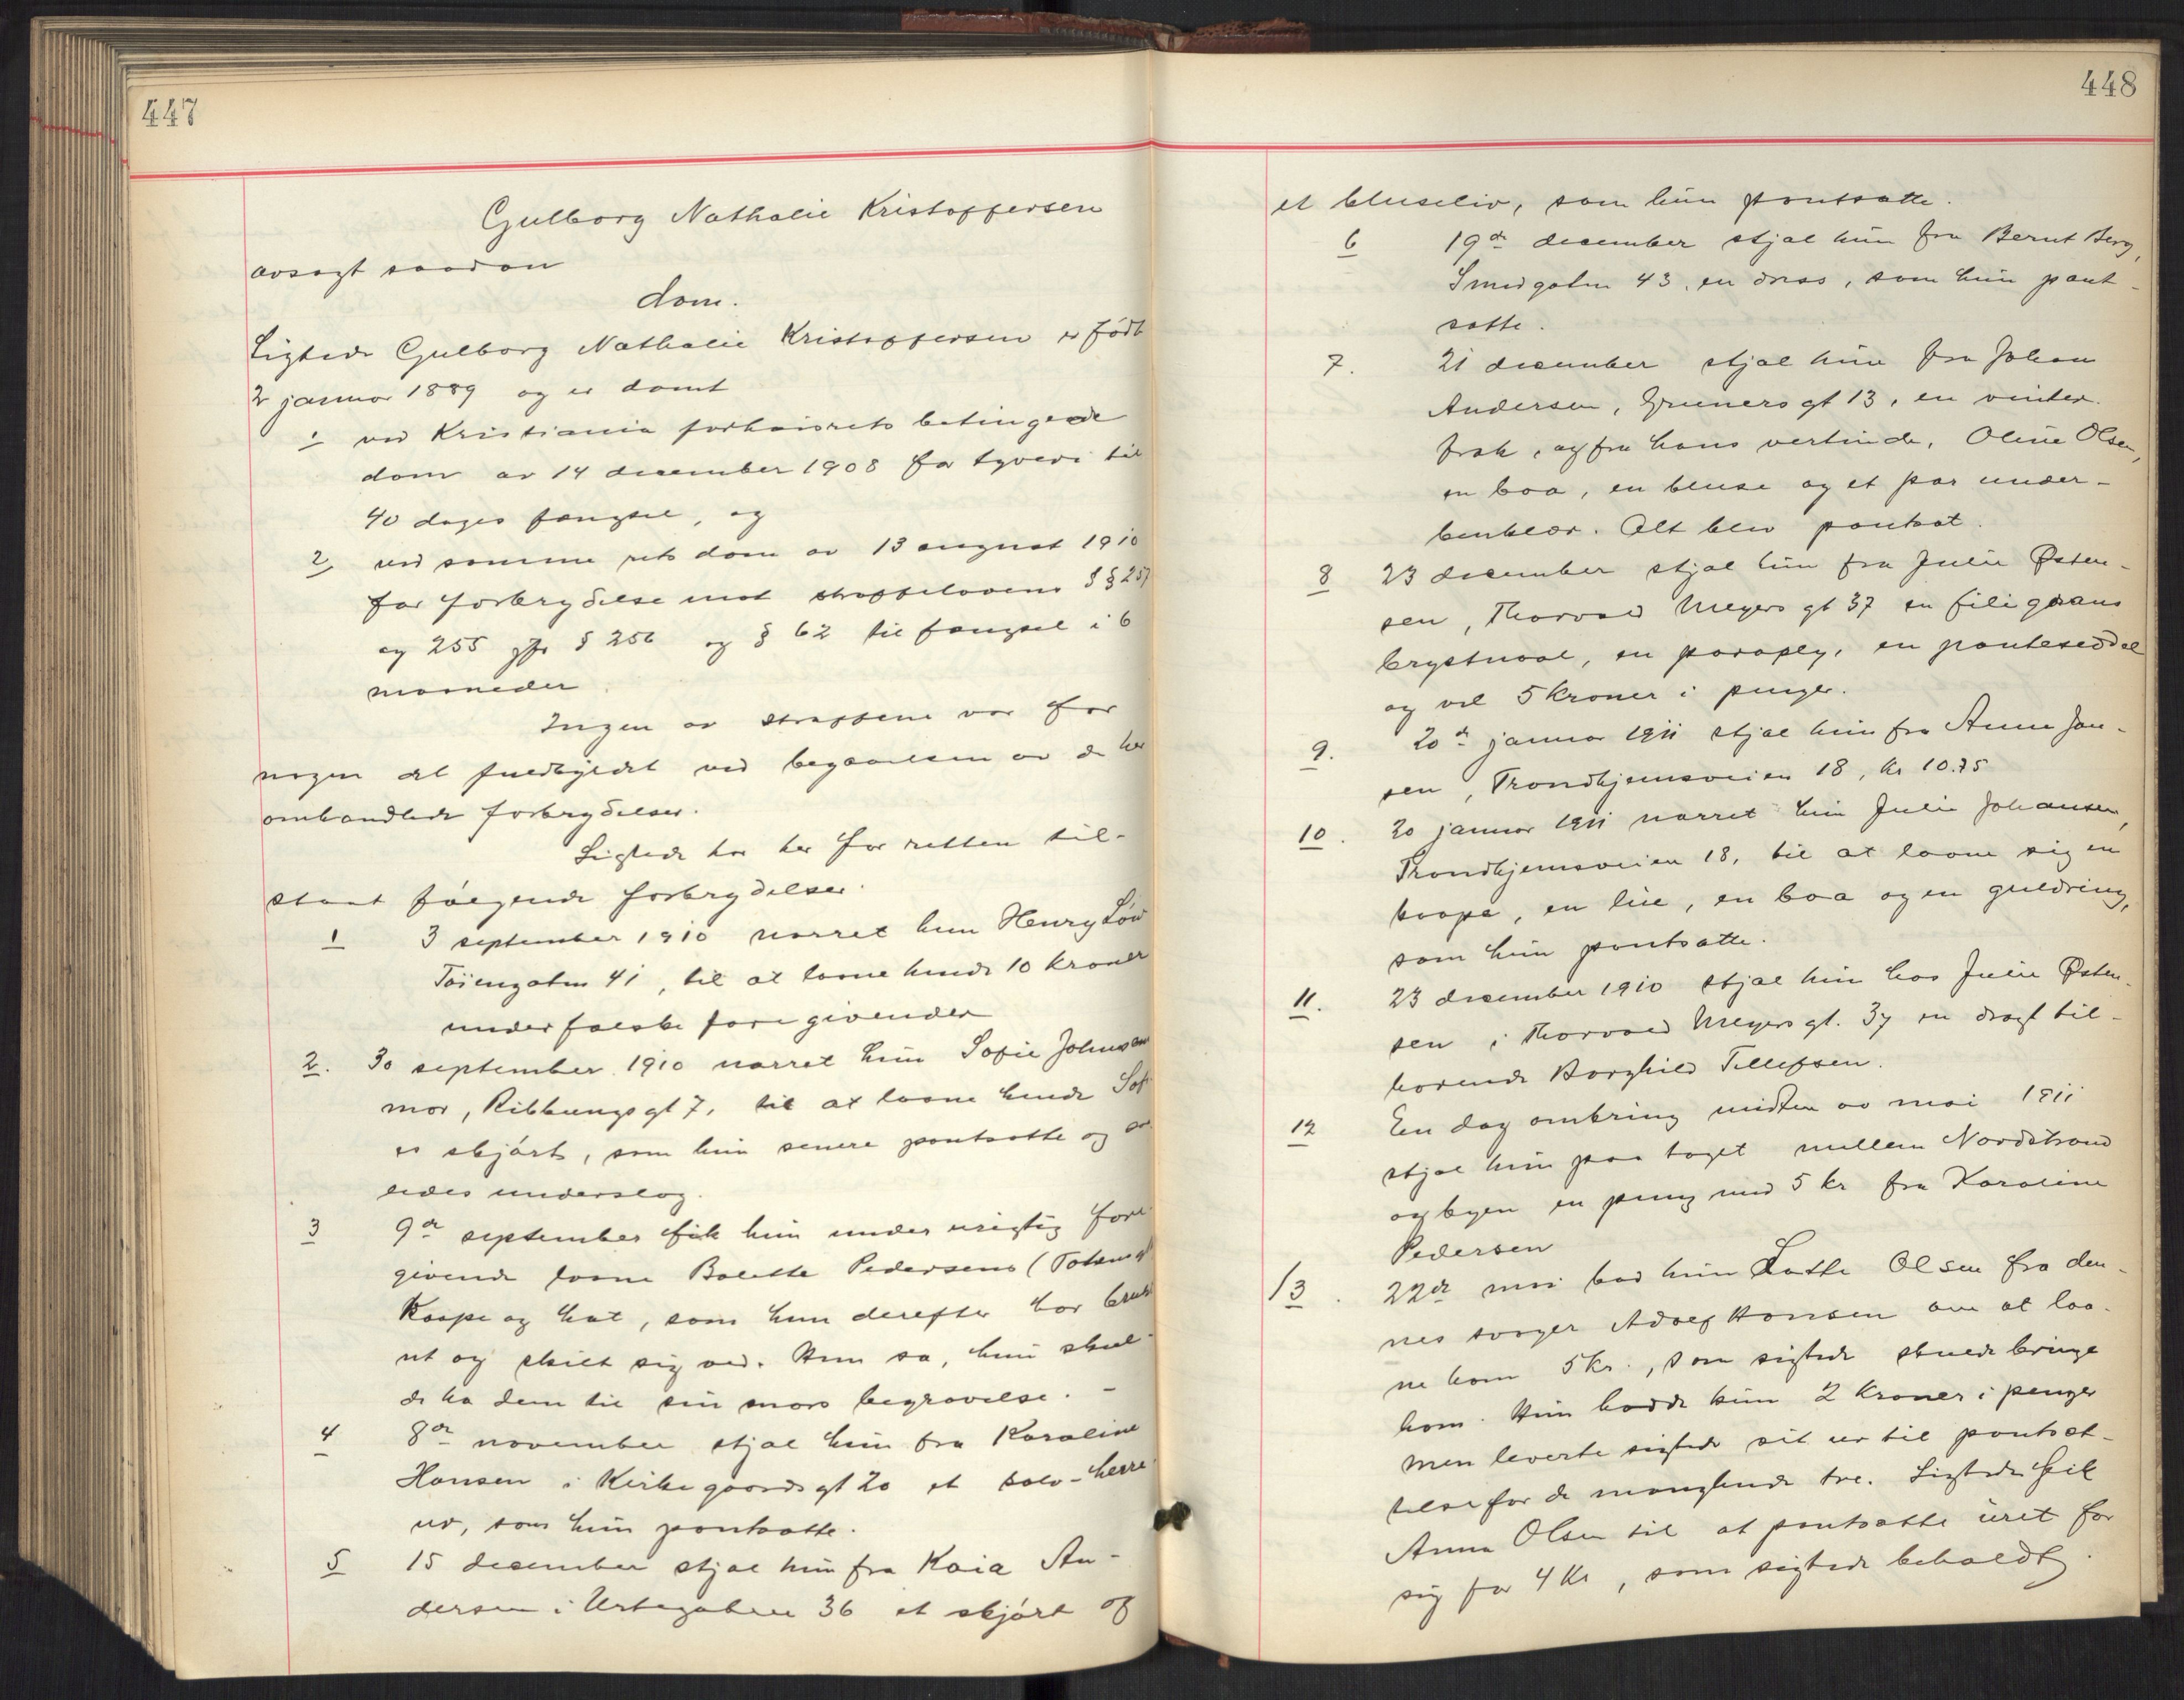 447
Gulborg Nathalie Kristoffersen
avsagt saadan
dom.
Sigtede Gulborg Nathalie Kristoffersen er født
2 januar 1889 og er dømt
1 ved Kristiania forhørsrets betingede
dom av 14 december 1908 for tyveri til
40 dages fængsel, og
2, ved samme rets dom av 13 august 1910
for forbrydelse mot straffelovens §§ 257
og 255 jfr § 256 og § 62 til fængsel i 6
maaneder.
Ingen av straffene var for
nogen del fuldbyrdet ved begaaelsen av de her
omhandlede forbrydelser.
Sigtede har her for retten til-
staat følgende forbrydelser.
1 3 september 1910 narret hun Henry Løw
Tøiengaten 41, til at laane hende 10 kroner
under falske foregivender
2. 30 september 1910 narret hun Sofie Johnsens
mor, Ribbungsgt 7, til at laane hende Sofi
es skjørt, som hun senere pantsatte og saa
ledes underslog.
3 9de september fik hun under urigtig fore
givende laane Bolette Pedersens (Totensgt
Kaape og hat, som hun derefter har brukt
ut og skilt sig ved. Hun sa, hun skul-
de ha dem til sin mors begravelse. -
4 8de november stjal hun fra Karoline
Hansen i Kirkegaardsgt 20 et sølv-herre
ur, som hun pantsatte.
5 15 december stjal hun fra Kaia An-
dersen i Urtegaten 36 et skjørt og
448
et bluseliv, som hun pantsatte.
6 19de december stjal hun fra Bernt Berg,
Smedgaten 43, en dress, som hun pant-
satte.
7. 21 december stjal hun fra Johan
Andersen, Grünersgt 13, en vinter-
frak, og fra hans vertinde, Oline Olsen,
en boa, en bluse og et par under-
benklær. Alt blev pantsat.
8 23 december stjal hun fra Julie Østen-
sen, Thorvald Meyers gt 37 en filigrans
brystnaal, en paraply, en panteseddel
og vel 5 kroner i penger.
9. 20de januar 1911 stjal hun fra Anna Jan-
sen, Trondhjemsveien 18, kr 10.75
10. 20 januar 1911 narret hun Julie Johansen,
Trondhjemsveien 18, til at laane sig en
kaape, en lue, en boa og en guldring,
som hun pantsatte.
11. 23 december 1910 stjal hun hos Julie Østen-
sen i Thorvald Meyers gt. 37 en dragt til-
hørende Borghild Tellefsen.
12 En dag omkring midten av mai 1911
stjal hun paa toget mellem Nordstrand
og byen en pung med 5 kr fra Karoline
Pedersen
13. 22de mai bad hun Lotte Olsen fra den-
nes svoger Adolf Hansen om at laa-
ne ham 5 kr., som sigtede skulde bringe
ham. Hun hadde kun 2 kroner i penger
men leverte sigtede sit ur til pantsæt-
telse for de manglende tre. Sigtede fik
Anna Olsen til at pantsætte uret for
sig for 4 Kr, som sigtede beholdt.